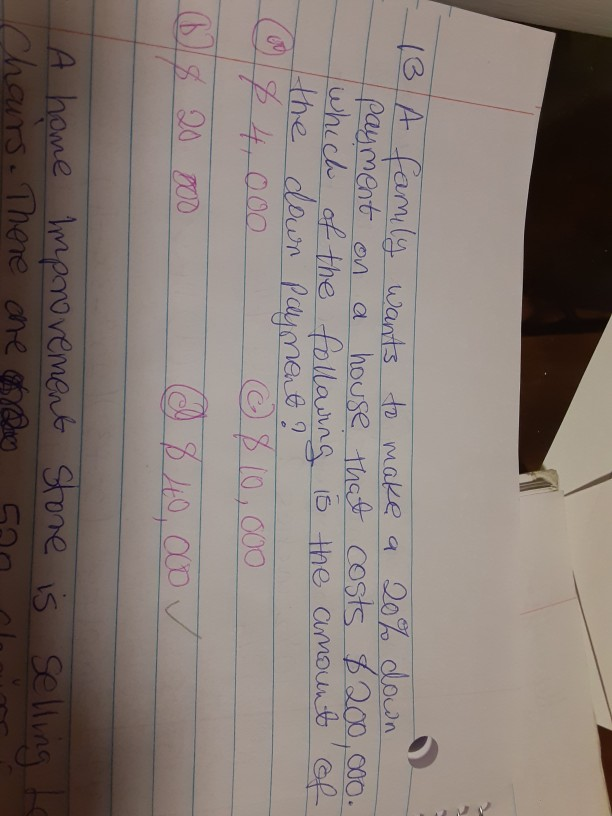 13 A family wants to make a 20% down
payment on a house that costs $200,000.
which of the following is the amount of
the down payment?
(a) $ 4,000 (c) $10,000
(b) $ 20 000 (d) $ 40,000 ✓
A home Improvement store is selling
Chairs. There are 520 chairs